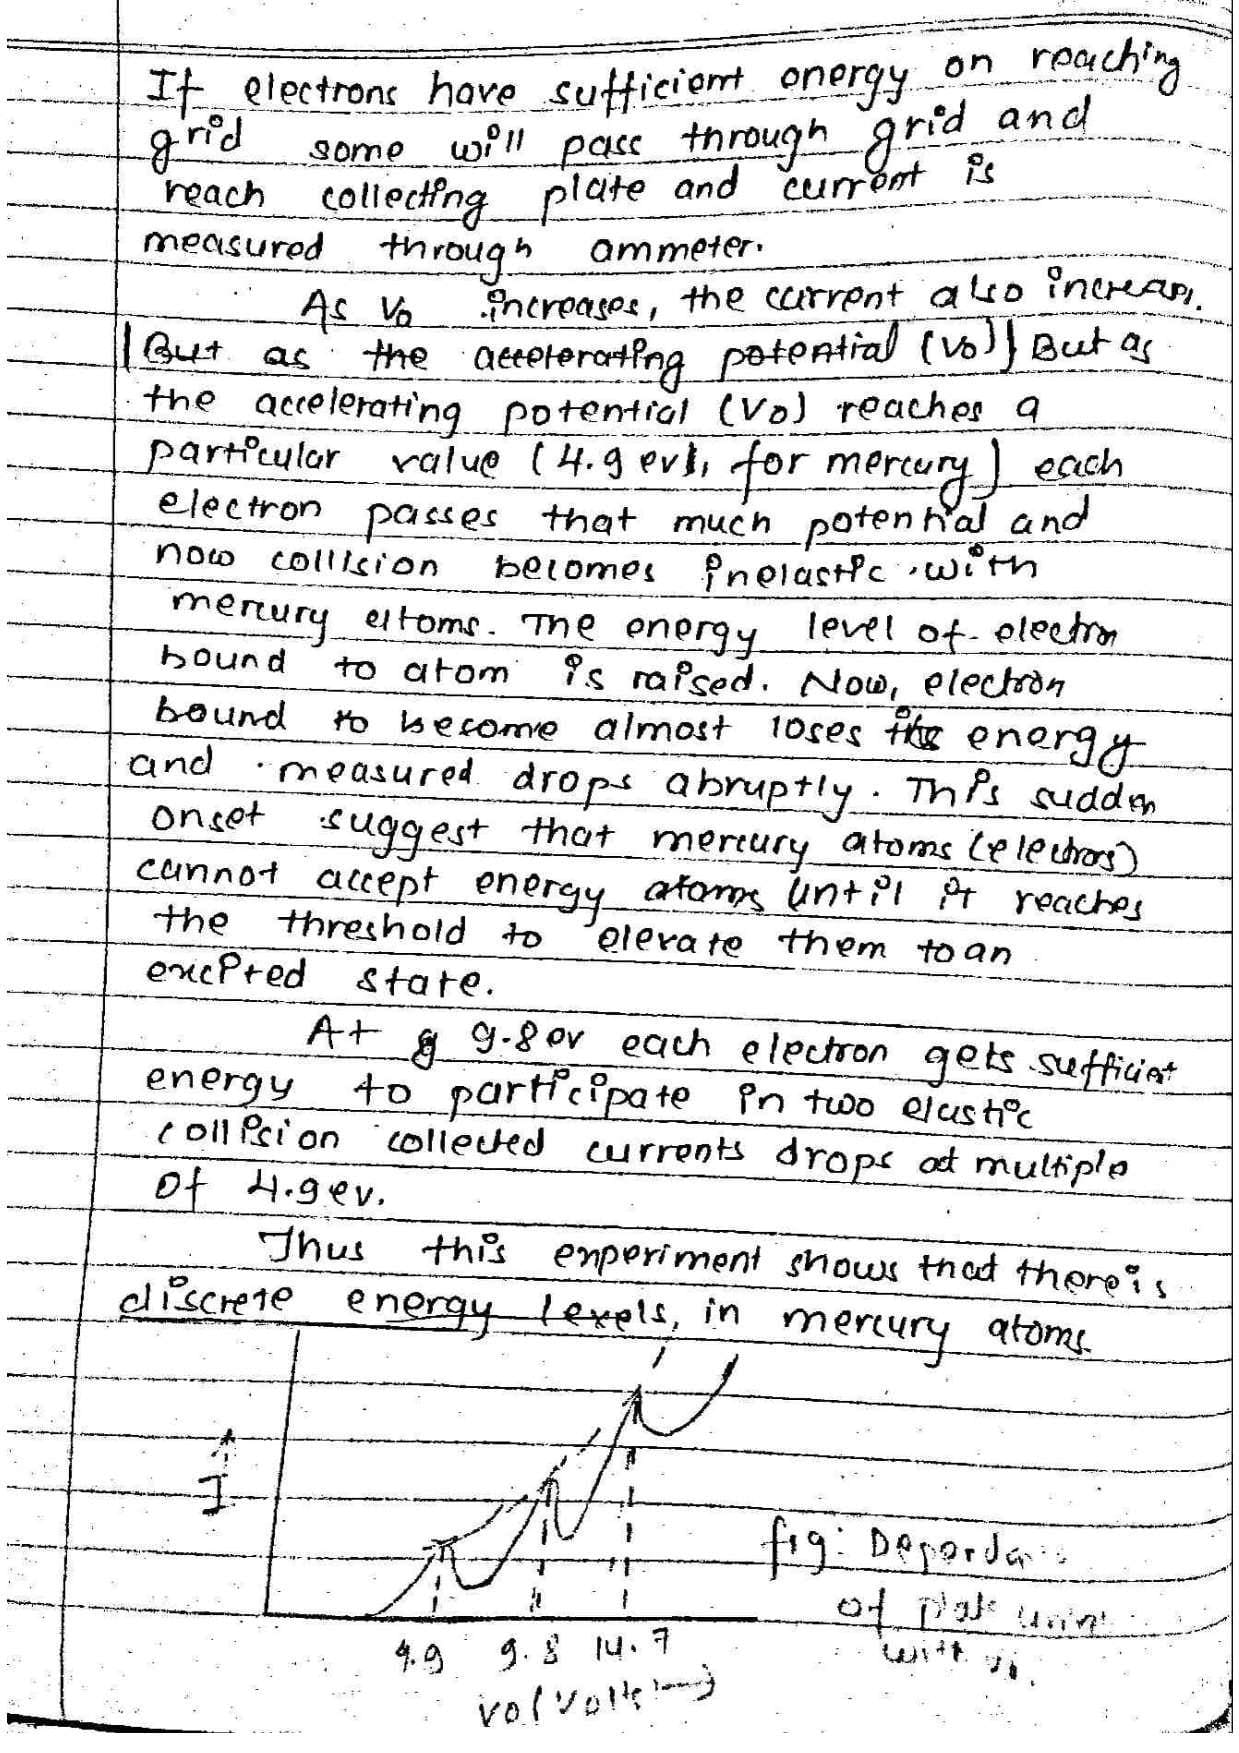 If electrons have sufficient energy on reaching
grid some will pass through grid and
reach collecting plate and current is
measured through ammeter.
As V₀ increases, the current also increases.
But as the accelerating potential (V₀) But as
the accelerating potential (V₀) reaches a
particular value (4.9 ev), for mercury) each
electron passes that much potential and
now collision becomes inelastic with
mercury atoms. The energy level of electron
bound to atom is raised. Now, electron
bound to become almost loses its energy
and measured drops abruptly. This sudden
onset suggest that mercury atoms (electrons)
cannot accept energy atoms until it reaches
the threshold to elevate them to an
excited state.
At 9.8 ev each electron gets sufficient
energy to participate in two elastic
collision collected currents drops at multiple
of 4.9 ev.
Thus this experiment shows that there is
discrete energy levels, in mercury atoms.
I
4.9 9.8 14.7
V₀ (Volts)
fig: Dependa
of plate
with V₀.